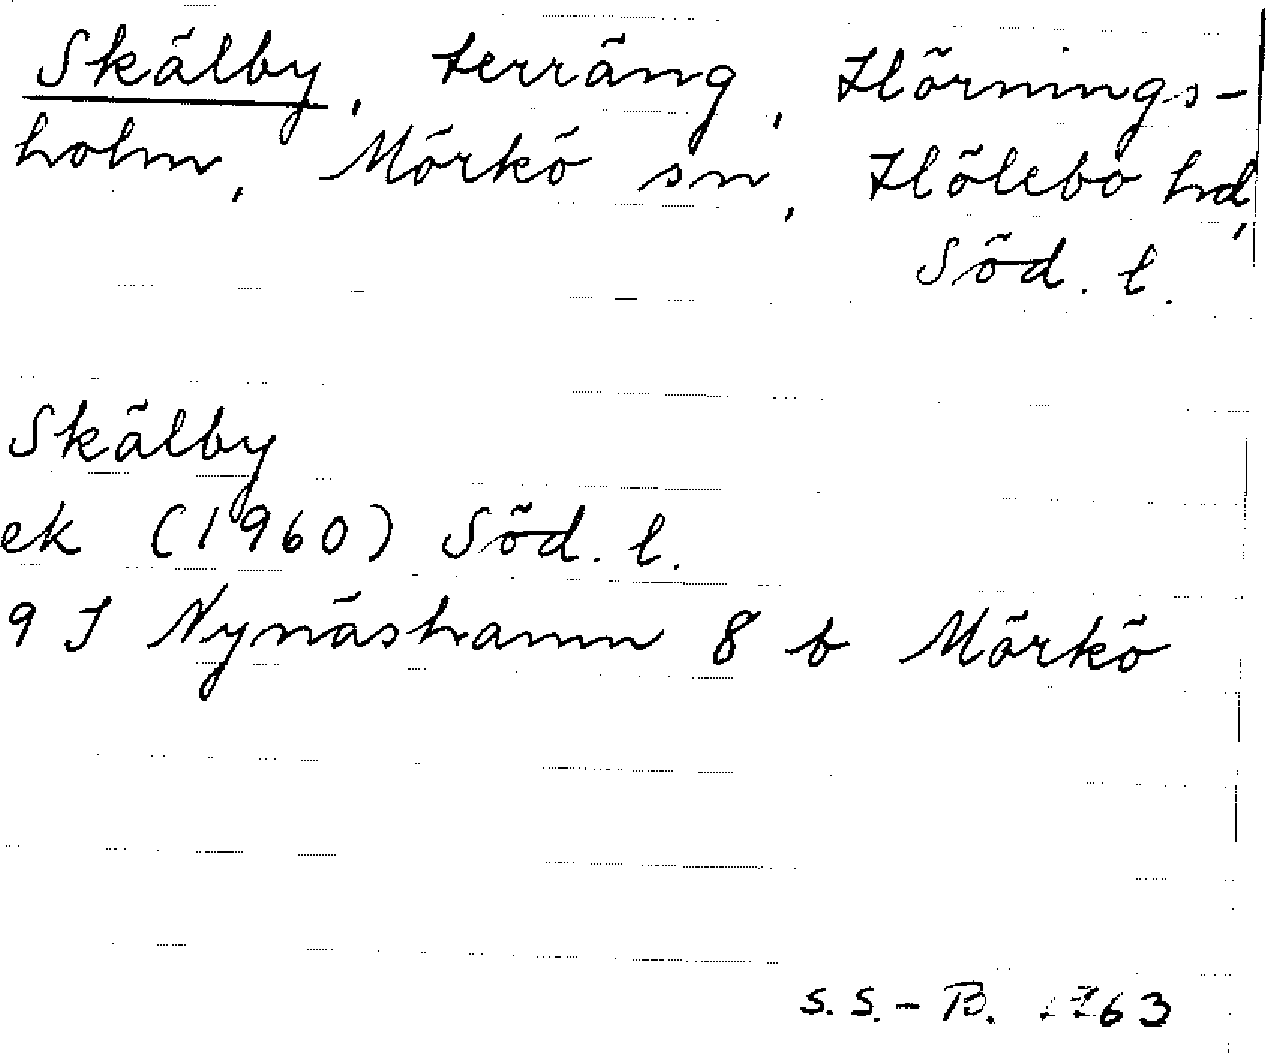 Skälby, terräng, Hörnings-
holm, Mörkö sn, Hölebo hd,
Söd. l.
Skälby
ek (1960) Söd. l.
9 I Nynäshamn 8 b Mörkö
S. S. - B. 1963